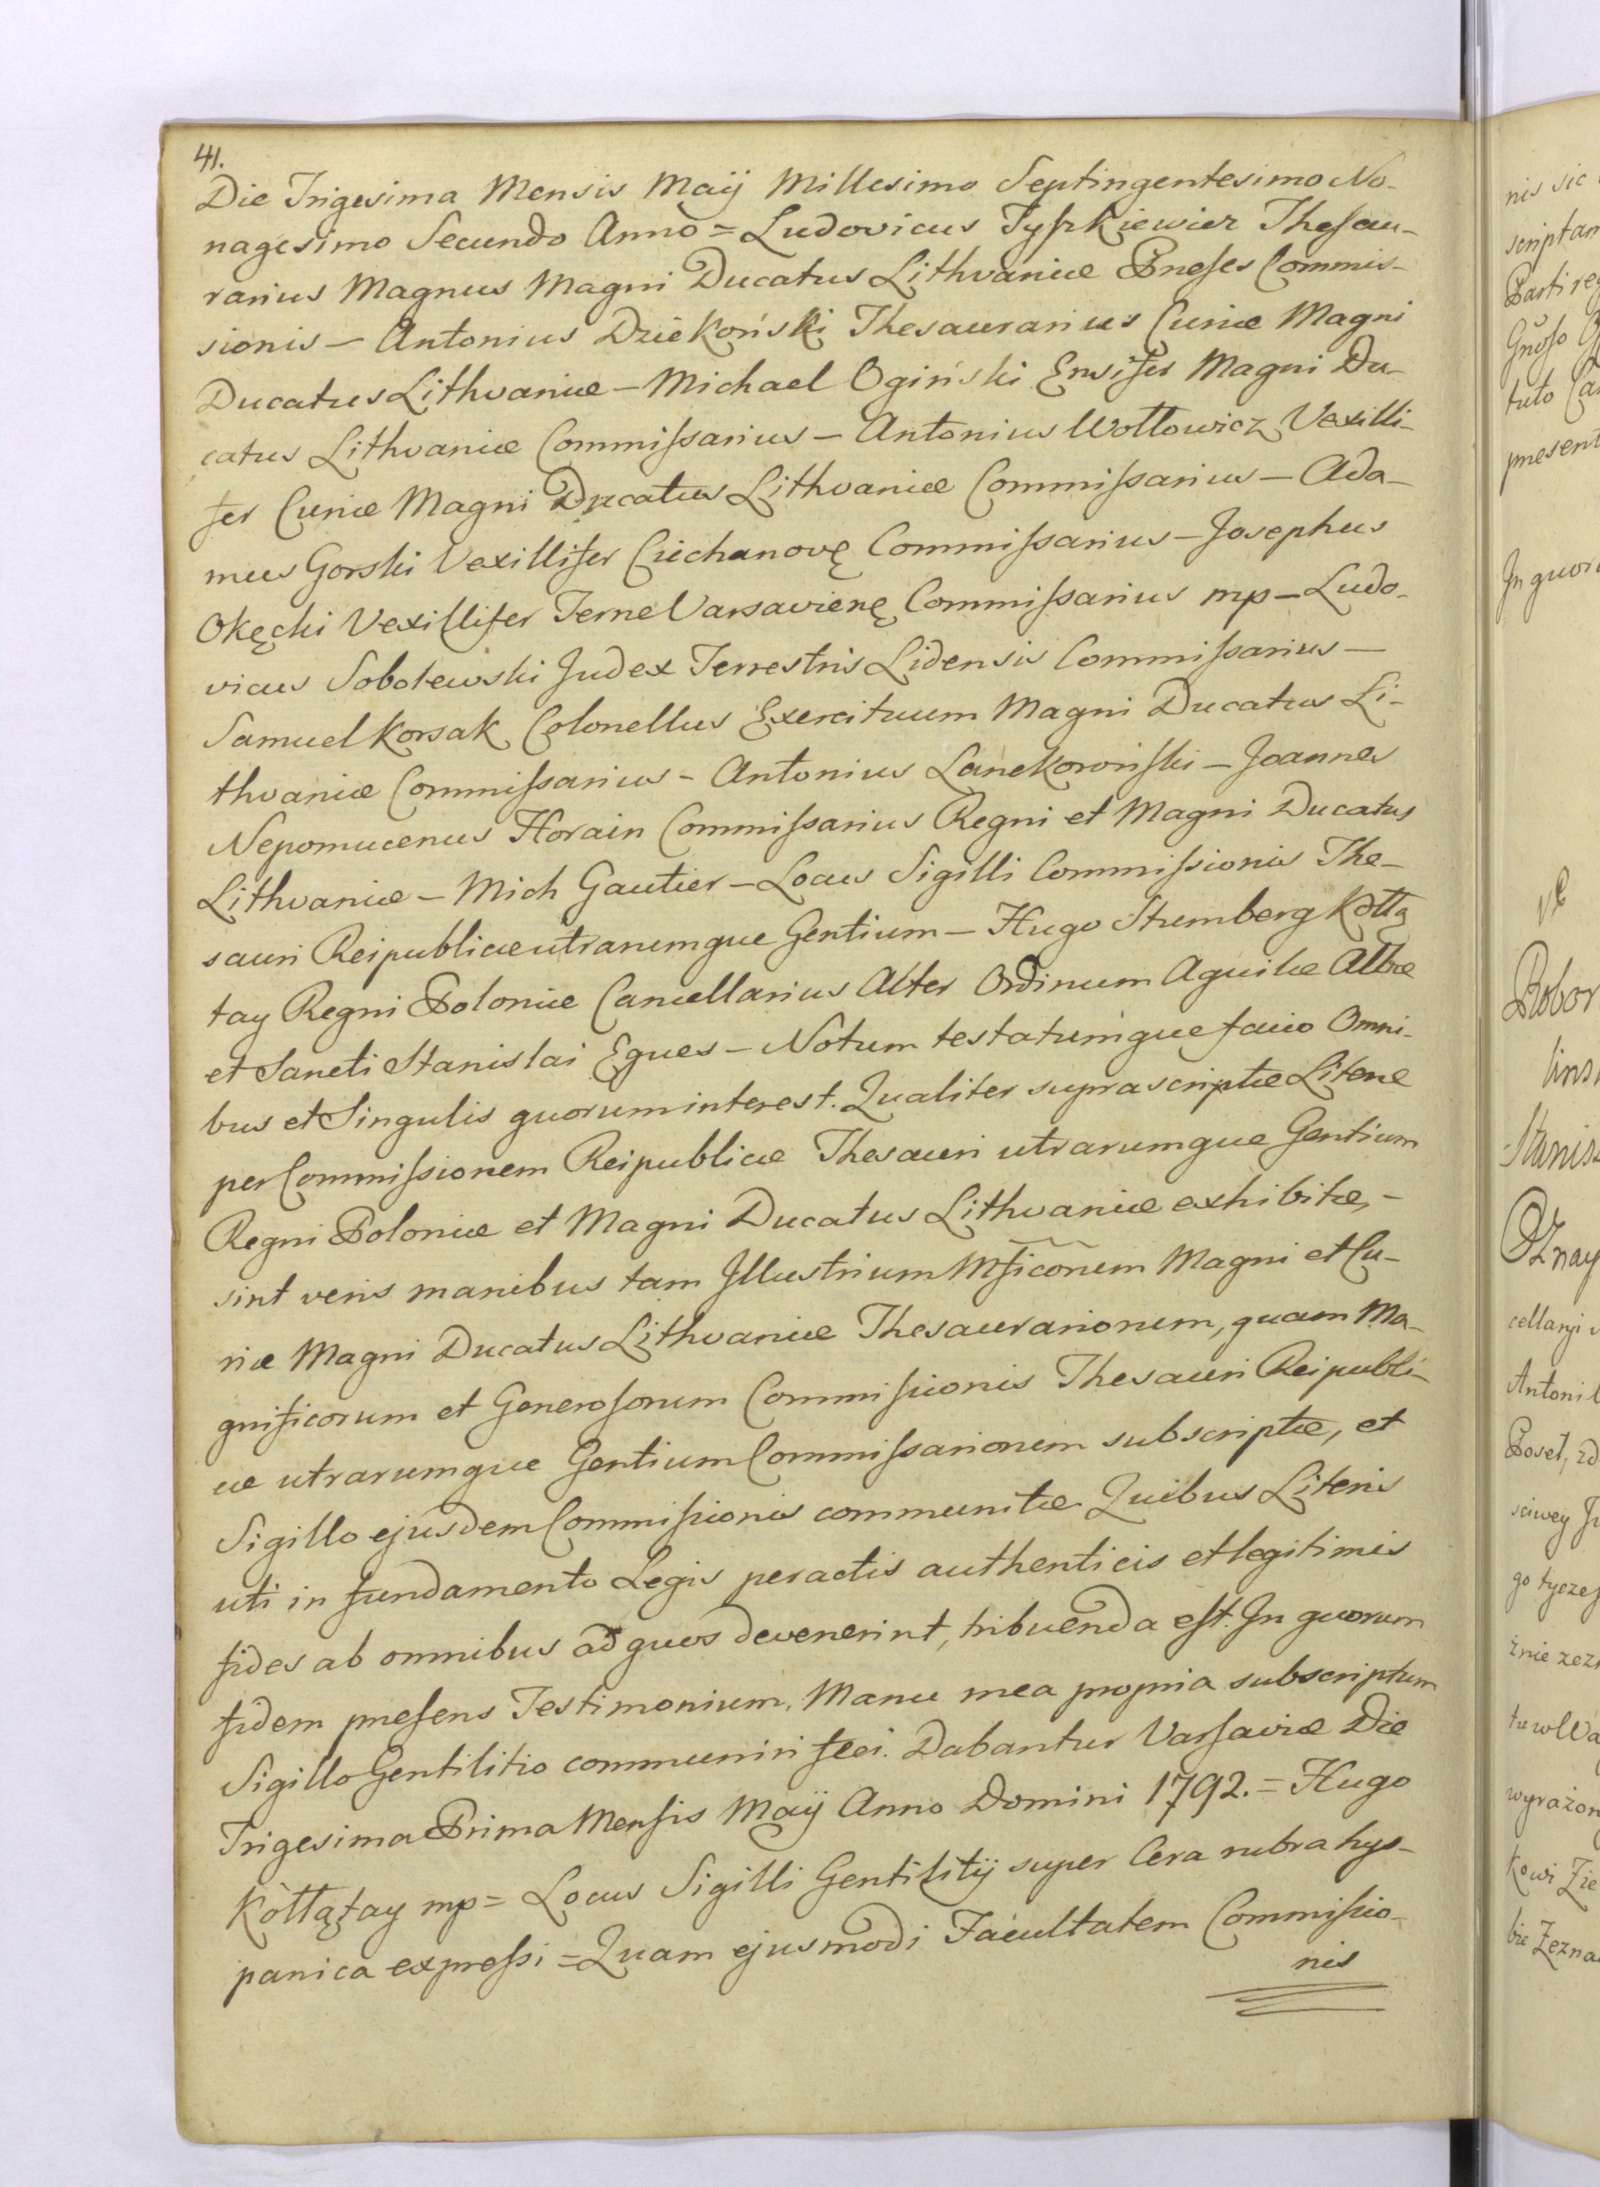 41.
Die Trigesima Mensis Maÿ Millesimo Septingentesimo No-
nagesimo Secundo Anno = Ludovicus Tyszkiewicz Thesau-
rarius Magnus Magni Ducatus Lithvaniæ Præses Commis-
sionis – Antonius Dziekoński Thesaurarius Curiæ Magni
Ducatus Lithvaniæ – Michael Ogiński Ensifer Magni Du-
catus Lithvaniæ Commissarius – Antonius Wołłowicz Vexilli-
fer Curiæ Magni Ducatus Lithvaniæ Commissarius – Ada-
mus Gorski Vexillifer Ciechanovę Commissarius – Josephus
Okęcki Vexillifer Terræ Varsavienę Commissarius mp – Ludo-
vicus Sobolewski Judex Terrestris Lidensis Commissarius –
Samuel Korsak Colonellus Exercituum Magni Ducatus Li-
thvaniæ Commissarius – Antonius Lanckoroński – Joannes
Nepomucenus Horain Commissarius Regni et Magni Ducatus
Lithvaniæ – Mich Gautier – Locus Sigilli Commissionis The-
sauri Reipublicæ utrarumque Gentium – Hugo Stumberg Kołłą
tay Regni Poloniæ Cancellarius Alter Ordinum Aquilæ Albæ
et Sancti Stanislai Eques – Notum testatumque facio Omni-
bus et Singulis quorum interest. Qualiter suprascriptæ Literæ
per Commissionem Reipublicæ Thesauri utrarumque Gentium
Regni Poloniæ et Magni Ducatus Lithvaniæ exhibitæ, –
sint veris manibus tam Illustrium Mficorum Magni et Cu-
riæ Magni Ducatus Lithvaniæ Thesaurariorum, quam Ma-
gnificorum et Generosorum Commissionis Thesauri Reipubli-
cæ utrarumque Gentium Commissariorum subscriptæ, et
Sigillo ejusdem Commissionis communitæ Quibus Literis
uti in fundamento Legis peractis authenticis et legitimis
fides ab omnibus ad quos devenerint, tribuenda est. In quorum
fidem præsens Testimonium, Manu mea propria subscriptum
Sigillo Gentilitio communiri feci. Dabantur Varsaviæ Die
Trigesima Prima Mensis Maÿ Anno Domini 1792. = Hugo
Kołłątay mp = Locus Sigilli Gentilitÿ super Cera rubra hys-
panica expressi = Quam ejusmodi Facultatem Commissio-
nis